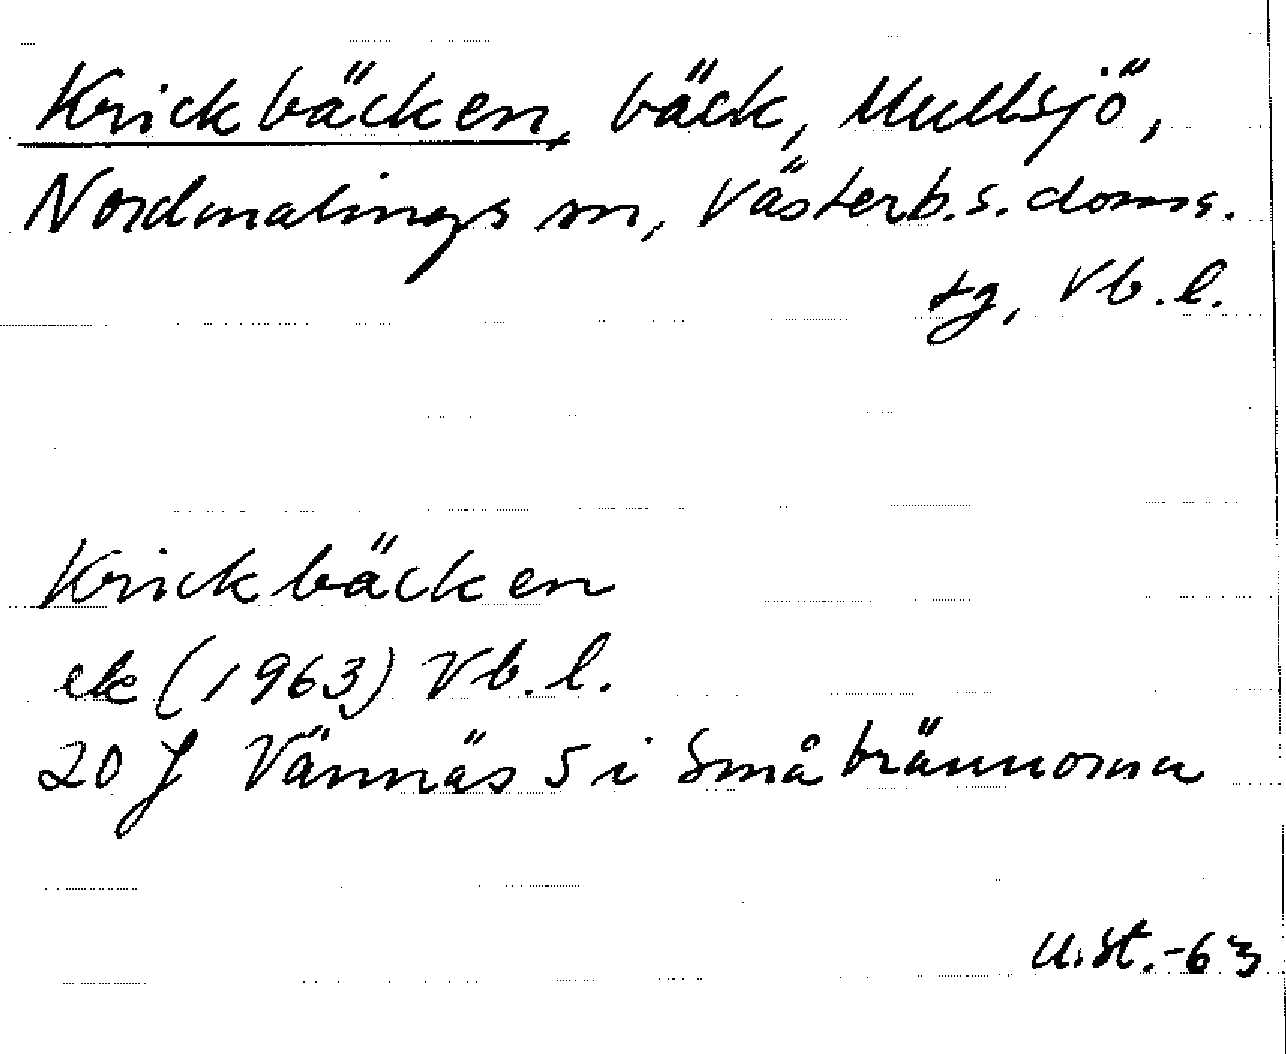 Krickbäcken, bäck, Mullsjö,
Nordmalings sn, Västerb.s. doms.
tg, Vb.l.
Krickbäcken
ek (1963) Vb.l.
20 J Vännäs 5 i Småbrännorna
U.St.-63